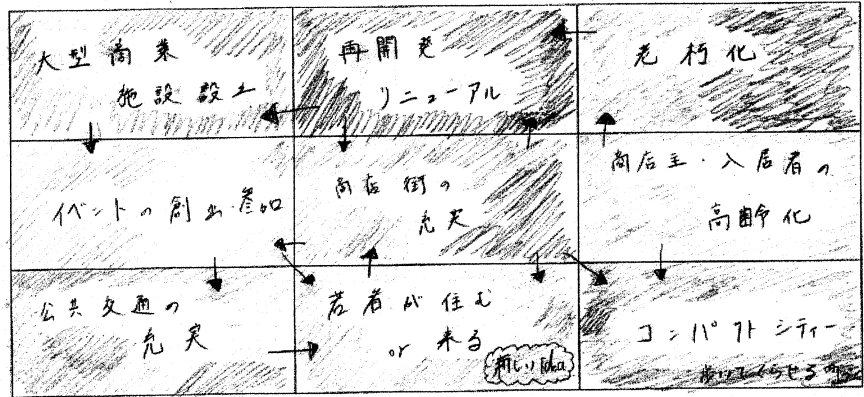 大型商業
施設設立
再開発
リニューアル
老朽化
イベントの創出・参加
商店街の
充実
商店主・入居者の
高齢化
公共交通の
充実
若者が住む
or 来る
新しいidea
コンパクトシティー
歩いてくらせる